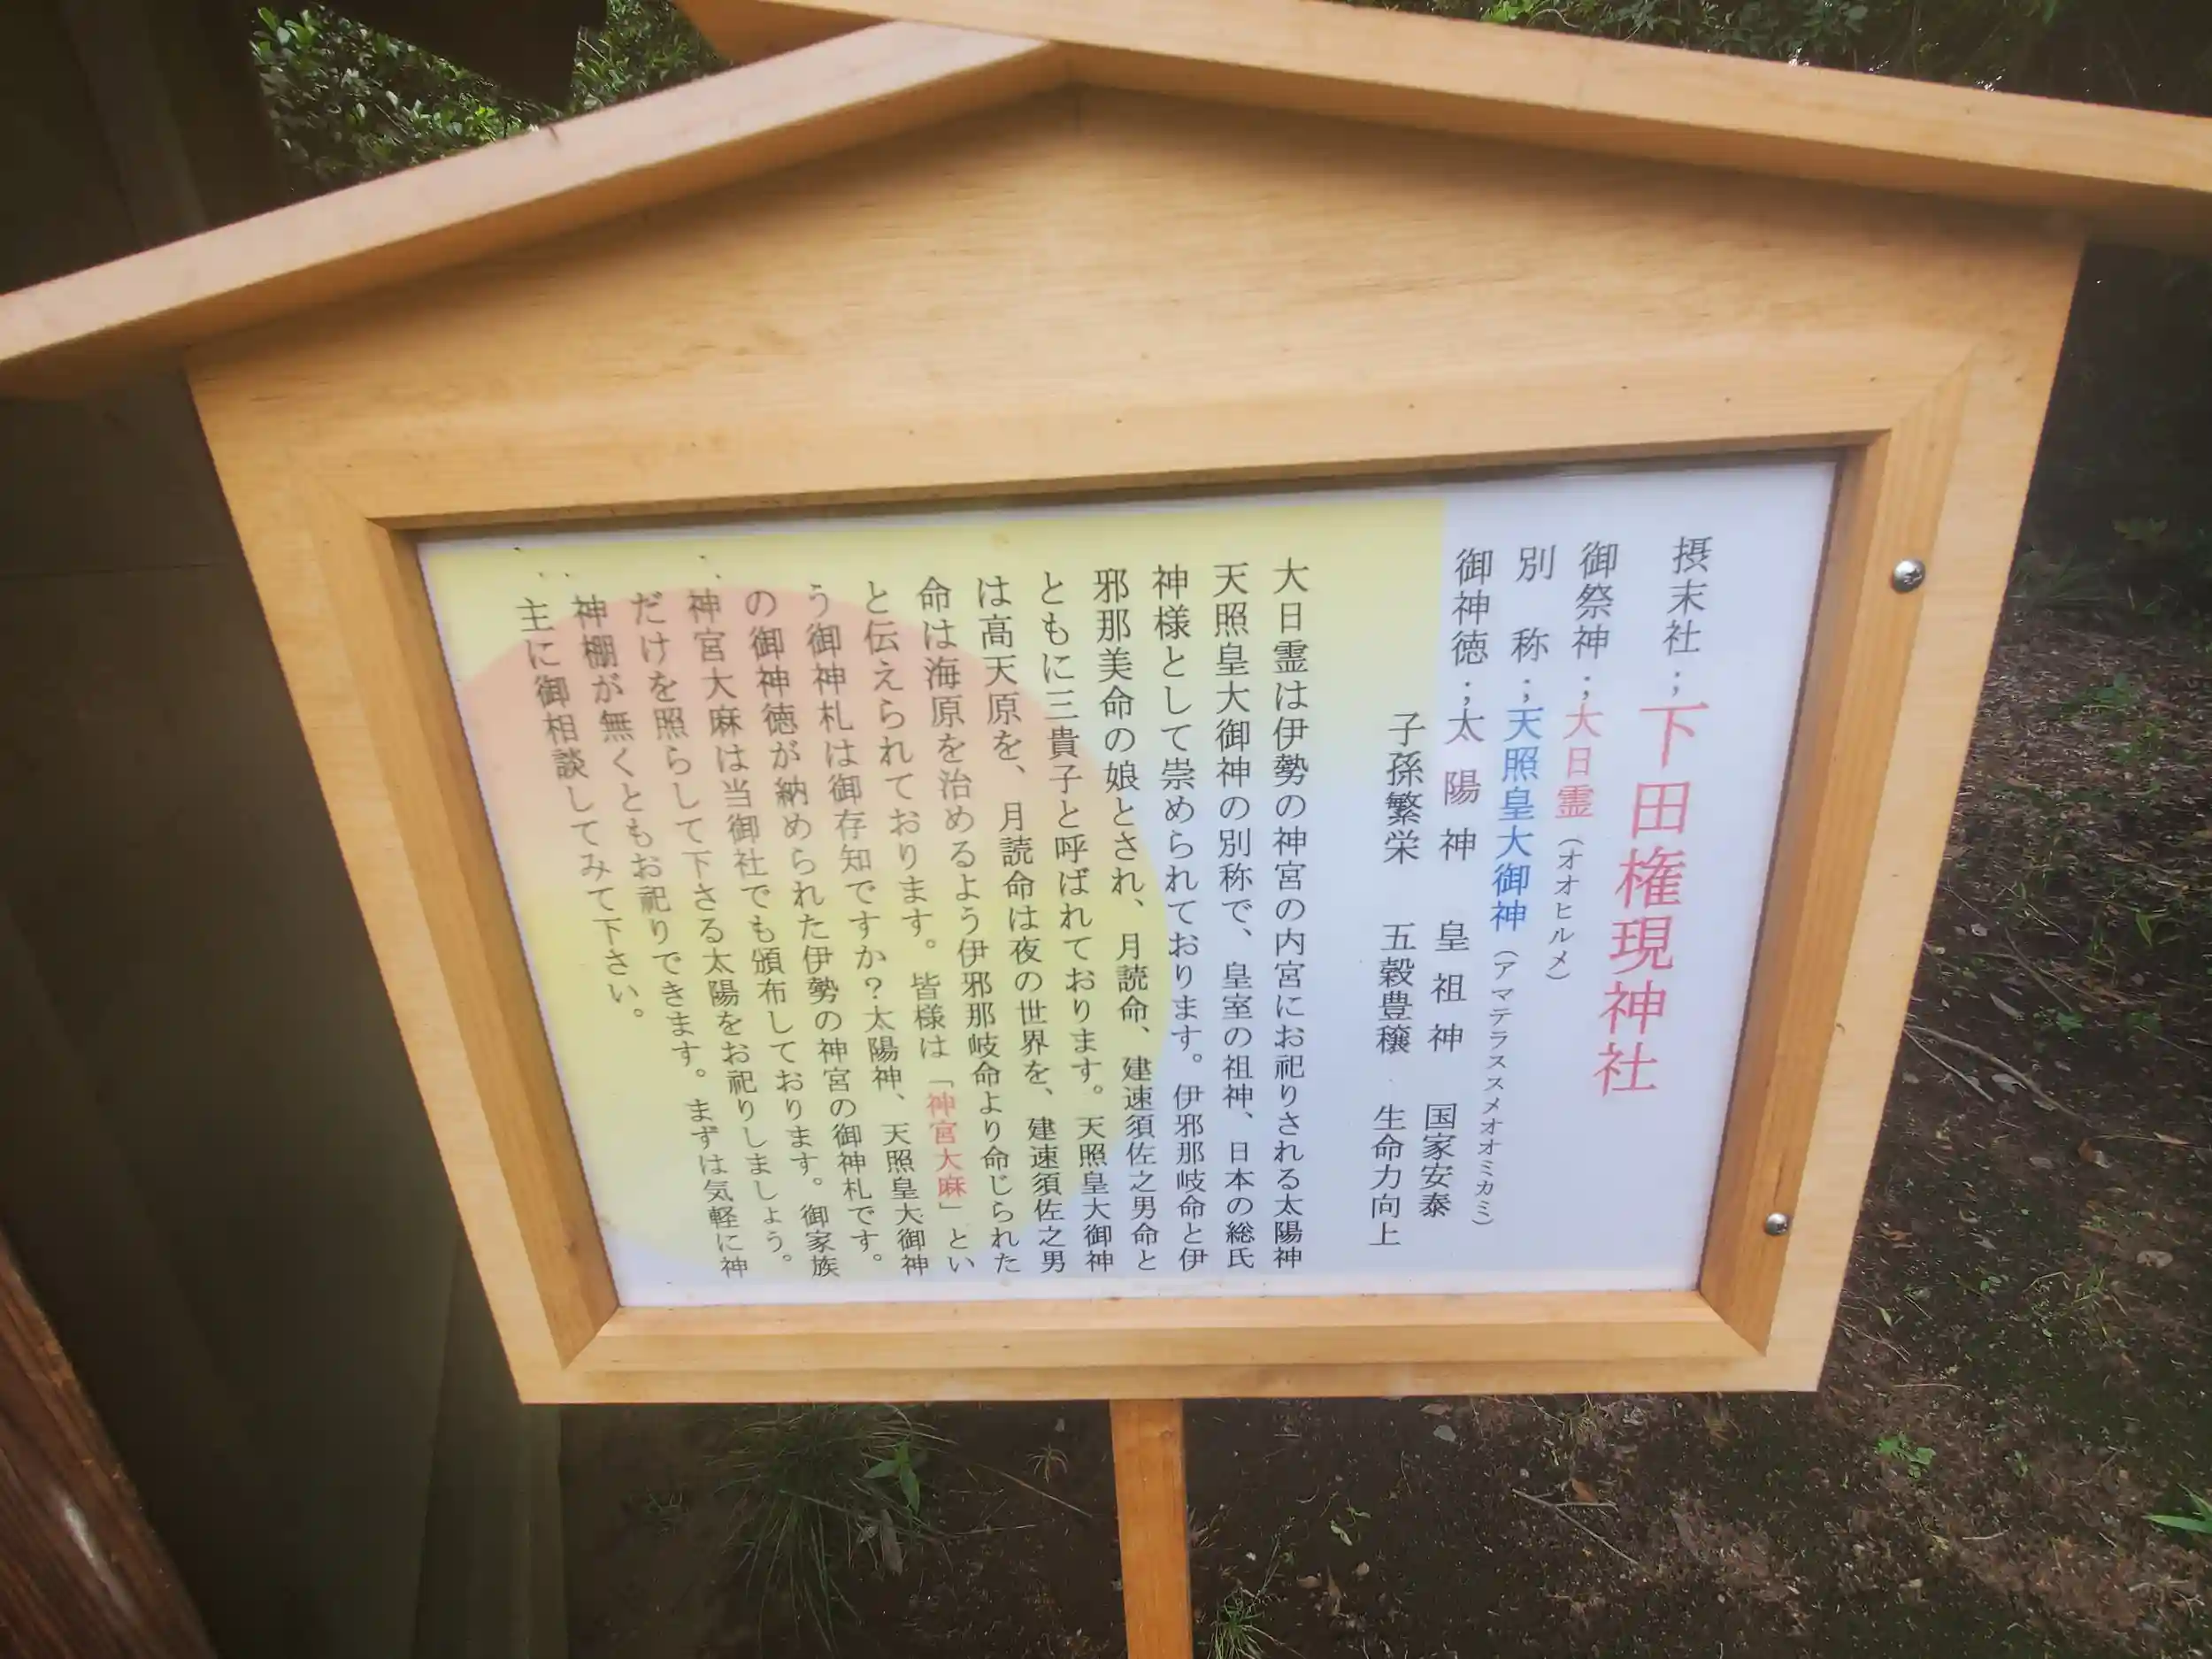 摂末社；下田権現神社
御祭神；大日霊（オオヒルメ）
別　称；天照皇大御神（アマテラススメオオミカミ）
御神徳；太陽神　皇祖神　国家安泰
子孫繁栄　五穀豊穣　生命力向上
大日霊は伊勢の神宮の内宮にお祀りされる太陽神
天照皇大御神の別称で、皇室の祖神、日本の総氏
神様として崇められております。伊邪那岐命と伊
邪那美命の娘とされ、月読命、建速須佐之男命と
ともに三貴子と呼ばれております。天照皇大御神
は高天原を、月読命は夜の世界を、建速須佐之男
命は海原を治めるよう伊邪那岐命より命じられた
と伝えられております。皆様は「神宮大麻」とい
う御神札は御存知ですか？太陽神、天照皇大御神
の御神徳が納められた伊勢の神宮の御神札です。
神宮大麻は当御社でも頒布しております。御家族
だけを照らして下さる太陽をお祀りしましょう。
神棚が無くともお祀りできます。まずは気軽に神
主に御相談してみて下さい。